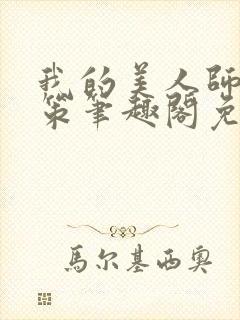 我的美人師
策筆趣閣免
馬尔基西奥